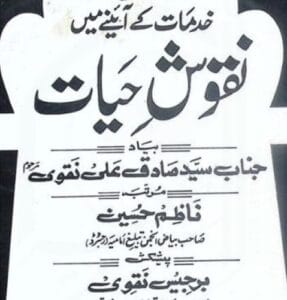 خدمات کے آئینے میں
نقوشِ حیات
بیاد
جناب سیّد صادق علی نقوی مرحوم
مرتبہ
ناظم حسین
صاحب بیاض انجمن تبلیغ امامیہ (رجسٹرڈ)
پیشکش
برجیس نقوی